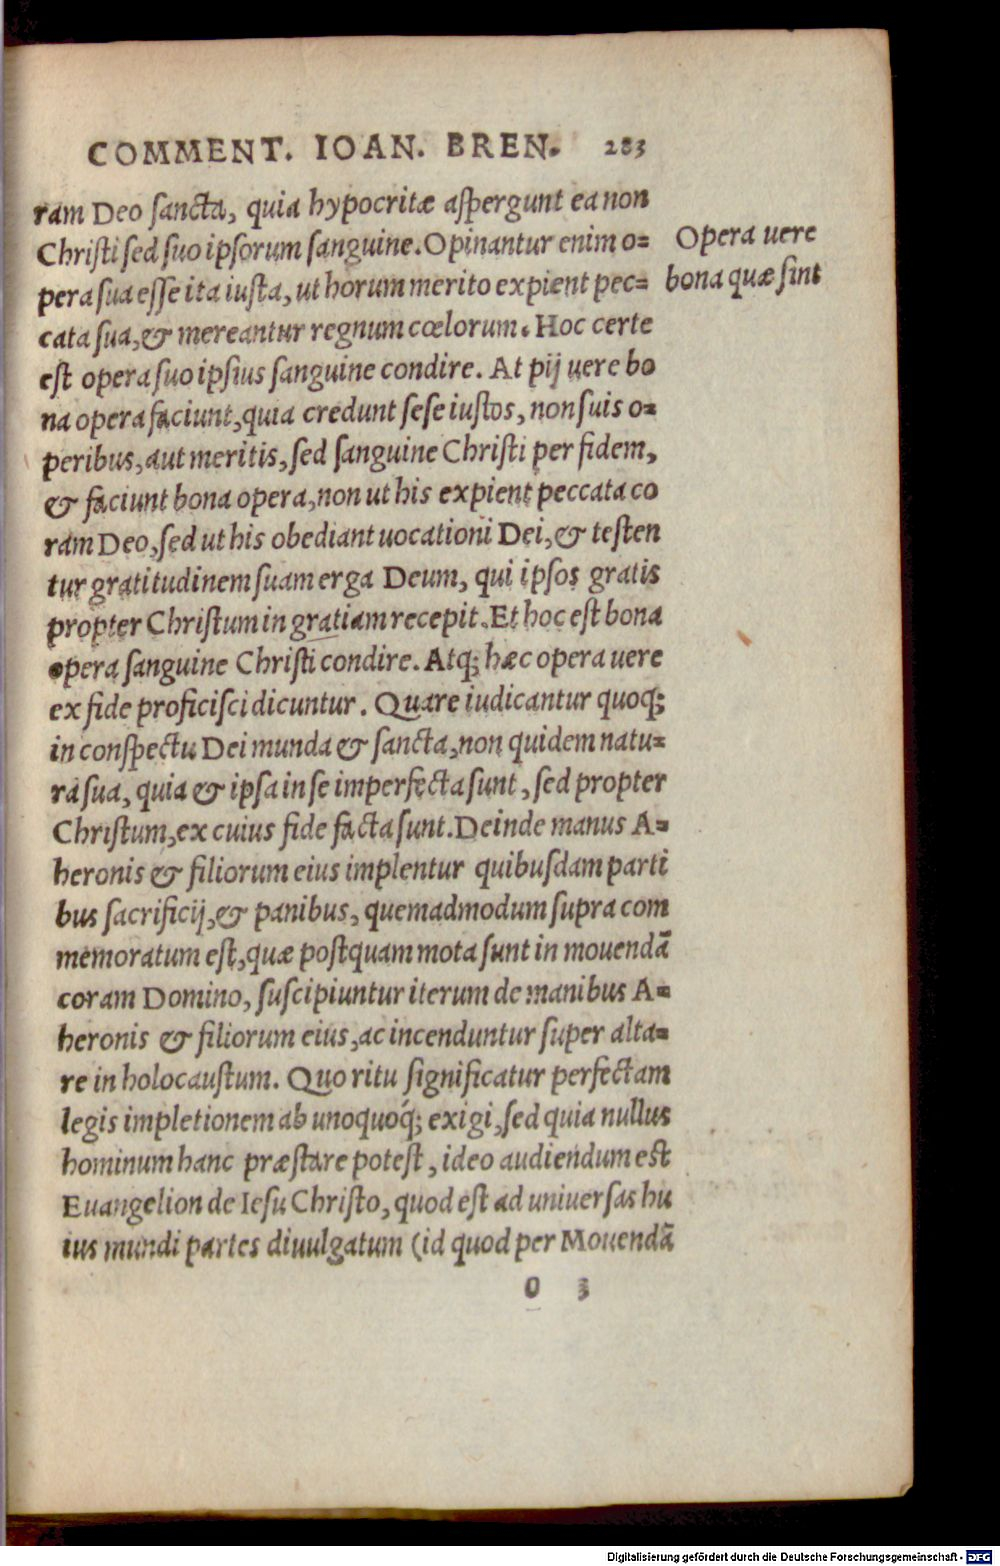 COMMENT. IOAN. BREN. 283
ram Deo sancta, quia hypocritæ aspergunt ea non
Christi sed suo ipsorum sanguine. Opinantur enim o=
Opera uere
pera sua esse ita iusta, ut horum merito expient pec=
bona quæ sint
cata sua, & mereantur regnum cœlorum. Hoc certe
est opera suo ipsius sanguine condire. At pij uere bo
na opera faciunt, quia credunt sese iustos, non suis o=
peribus, aut meritis, sed sanguine Christi per fidem,
& faciunt bona opera, non ut his expient peccata co
ram Deo, sed ut his obediant uocationi Dei, & testen
tur gratitudinem suam erga Deum, qui ipsos gratis
propter Christum in gratiam recepit. Et hoc est bona
opera sanguine Christi condire. Atq; hæc opera uere
ex fide proficisci dicuntur. Quare iudicantur quoq;
in conspectu Dei munda & sancta, non quidem natu=
ra sua, quia & ipsa in se imperfecta sunt, sed propter
Christum, ex cuius fide facta sunt. Deinde manus A=
heronis & filiorum eius implentur quibusdam parti
bus sacrificij, & panibus, quemadmodum supra com
memoratum est, quæ postquam mota sunt in mouendã
coram Domino, suscipiuntur iterum de manibus A=
heronis & filiorum eius, ac incenduntur super alta=
re in holocaustum. Quo ritu significatur perfectam
legis impletionem ab unoquoq́; exigi, sed quia nullus
hominum hanc præstare potest, ideo audiendum est
Euangelion de Iesu Christo, quod est ad uniuersas hu
ius mundi partes diuulgatum (id quod per Mouendã
O 3
Digitalisierung gefördert durch die Deutsche Forschungsgemeinschaft - DFG